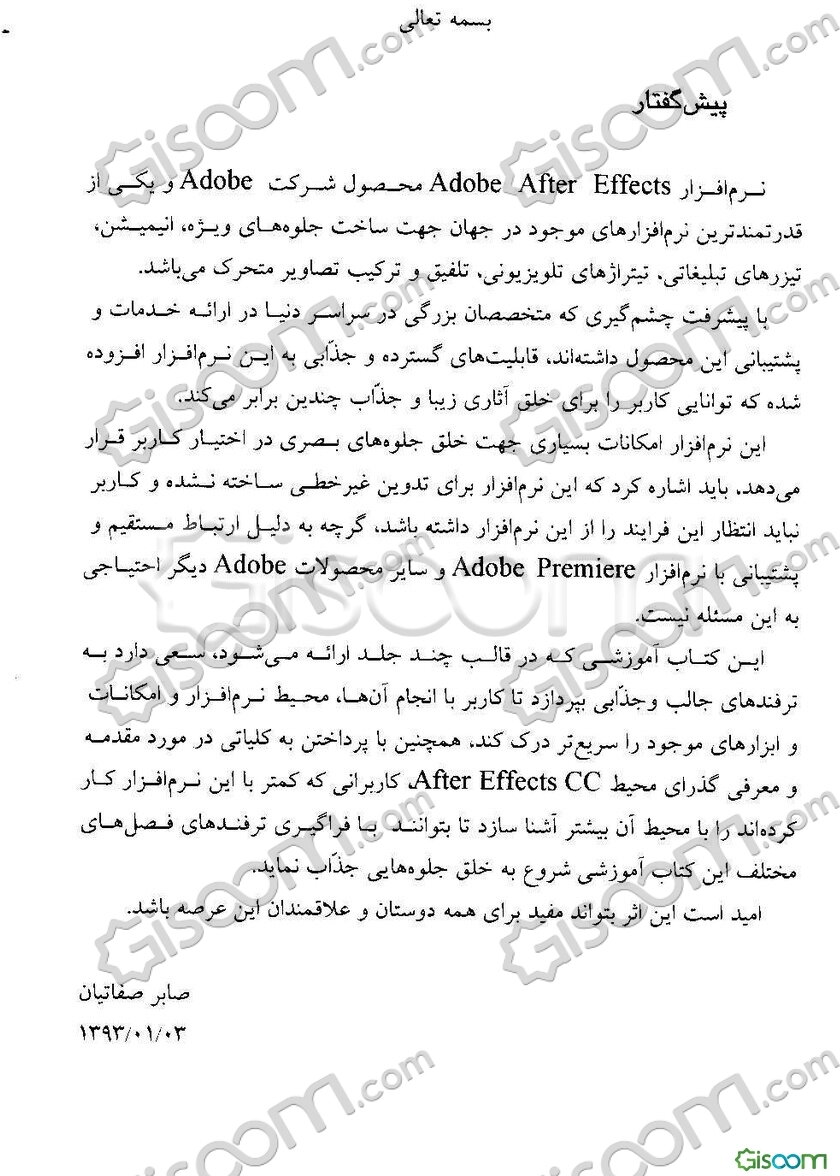 بسمه تعالی
پیش‌گفتار
نرم‌افزار Adobe After Effects محصول شرکت Adobe و یکی از
قدرتمندترین نرم‌افزارهای موجود در جهان جهت ساخت جلوه‌های ویژه، انیمیشن،
تیزرهای تبلیغاتی، تیتراژهای تلویزیونی، تلفیق و ترکیب تصاویر متحرک می‌باشد.
با پیشرفت چشم‌گیری که متخصصان بزرگی در سراسر دنیا در ارائه خدمات و
پشتیبانی این محصول داشته‌اند، قابلیت‌های گسترده و جذّابی به این نرم‌افزار افزوده
شده که توانایی کاربر را برای خلق آثاری زیبا و جذّاب چندین برابر می‌کند.
این نرم‌افزار امکانات بسیاری جهت خلق جلوه‌های بصری در اختیار کاربر قرار
می‌دهد. باید اشاره کرد که این نرم‌افزار برای تدوین غیرخطی ساخته نشده و کاربر
نباید انتظار این فرایند را از این نرم‌افزار داشته باشد، گرچه به دلیل ارتباط مستقیم و
پشتیبانی با نرم‌افزار Adobe Premiere و سایر محصولات Adobe دیگر احتیاجی
به این مسئله نیست.
این کتاب آموزشی که در قالب چند جلد ارائه می‌شود، سعی دارد به
ترفندهای جالب وجذّابی بپردازد تا کاربر با انجام آن‌ها، محیط نرم‌افزار و امکانات
و ابزارهای موجود را سریع‌تر درک کند، همچنین با پرداختن به کلیاتی در مورد مقدمه
و معرفی گذرای محیط After Effects CC، کاربرانی که کمتر با این نرم‌افزار کار
کرده‌اند را با محیط آن بیشتر آشنا سازد تا بتوانند با فراگیری ترفندهای فصل‌های
مختلف این کتاب آموزشی شروع به خلق جلوه‌هایی جذّاب نماید.
امید است این اثر بتواند مفید برای همه دوستان و علاقمندان این عرصه باشد.
صابر صفاتیان
۱۳۹۳/۰۱/۰۳
Gisoom.com
Gisoom